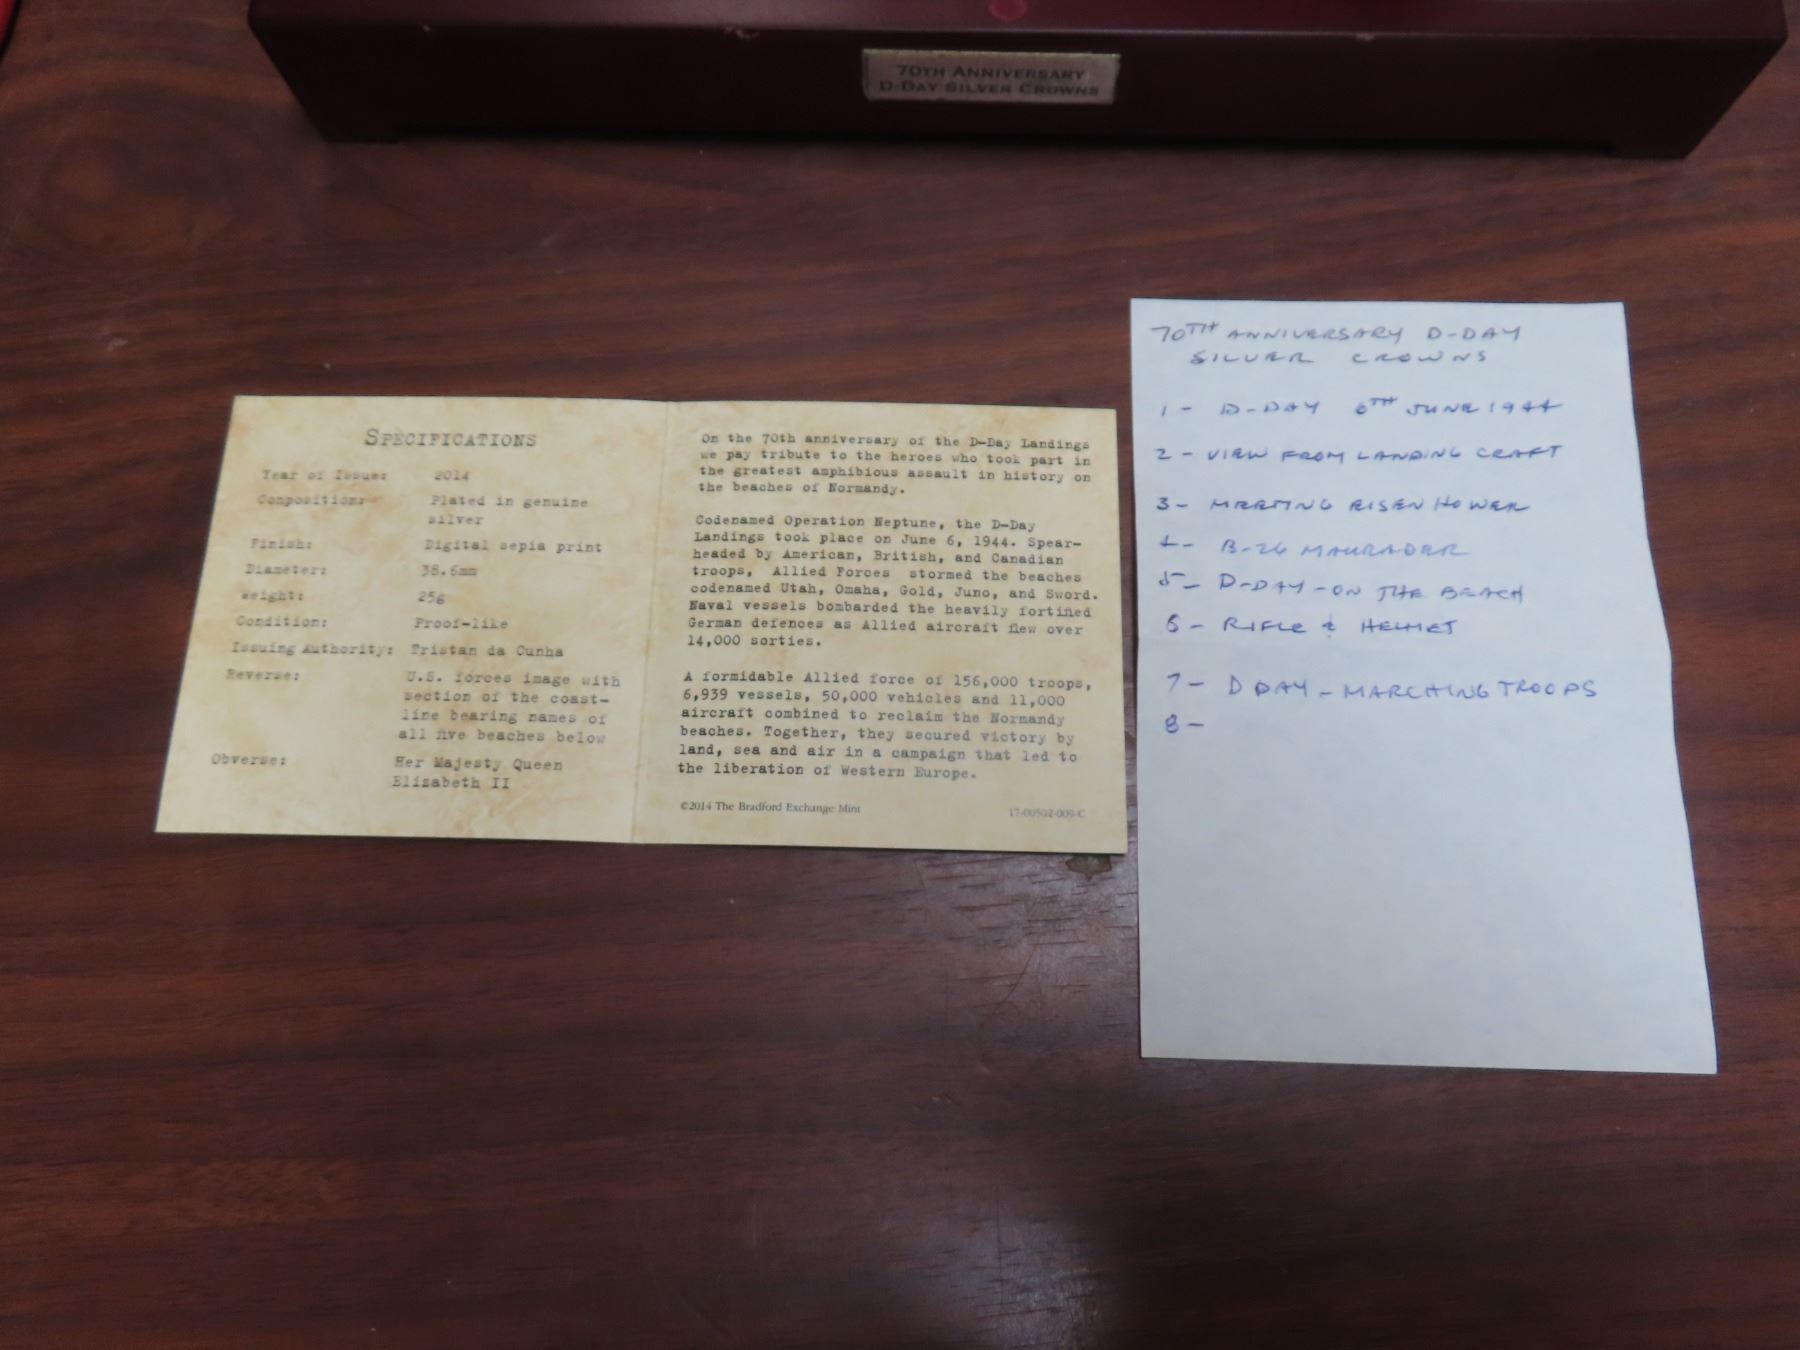 70TH ANNIVERSARY
D-DAY SILVER CROWNS
SPECIFICATIONS
Year of Issue: 2014
Composition: Plated in genuine
silver
Finish: Digital sepia print
Diameter: 38.6mm
Weight: 25g
Condition: Proof-like
Issuing Authority: Tristan da Cunha
Reverse: U.S. forces image with
section of the coast-
line bearing names of
all five beaches below
Obverse: Her Majesty Queen
Elizabeth II
On the 70th anniversary of the D-Day Landings
we pay tribute to the heroes who took part in
the greatest amphibious assault in history on
the beaches of Normandy.
Codenamed Operation Neptune, the D-Day
Landings took place on June 6, 1944. Spear-
headed by American, British, and Canadian
troops, Allied Forces stormed the beaches
codenamed Utah, Omaha, Gold, Juno, and Sword.
Naval vessels bombarded the heavily fortified
German defences as Allied aircraft flew over
14,000 sorties.
A formidable Allied force of 156,000 troops,
6,939 vessels, 50,000 vehicles and 11,000
aircraft combined to reclaim the Normandy
beaches. Together, they secured victory by
land, sea and air in a campaign that led to
the liberation of Western Europe.
©2014 The Bradford Exchange Mint 17-00502-009-C
70TH ANNIVERSARY D-DAY
SILVER CROWNS
1- D-DAY 6TH JUNE 1944
2- VIEW FROM LANDING CRAFT
3- MEETING EISENHOWER
4- B-26 MAURADER
5- D-DAY-ON THE BEACH
6- RIFLE & HELMET
7- D DAY-MARCHING TROOPS
8-